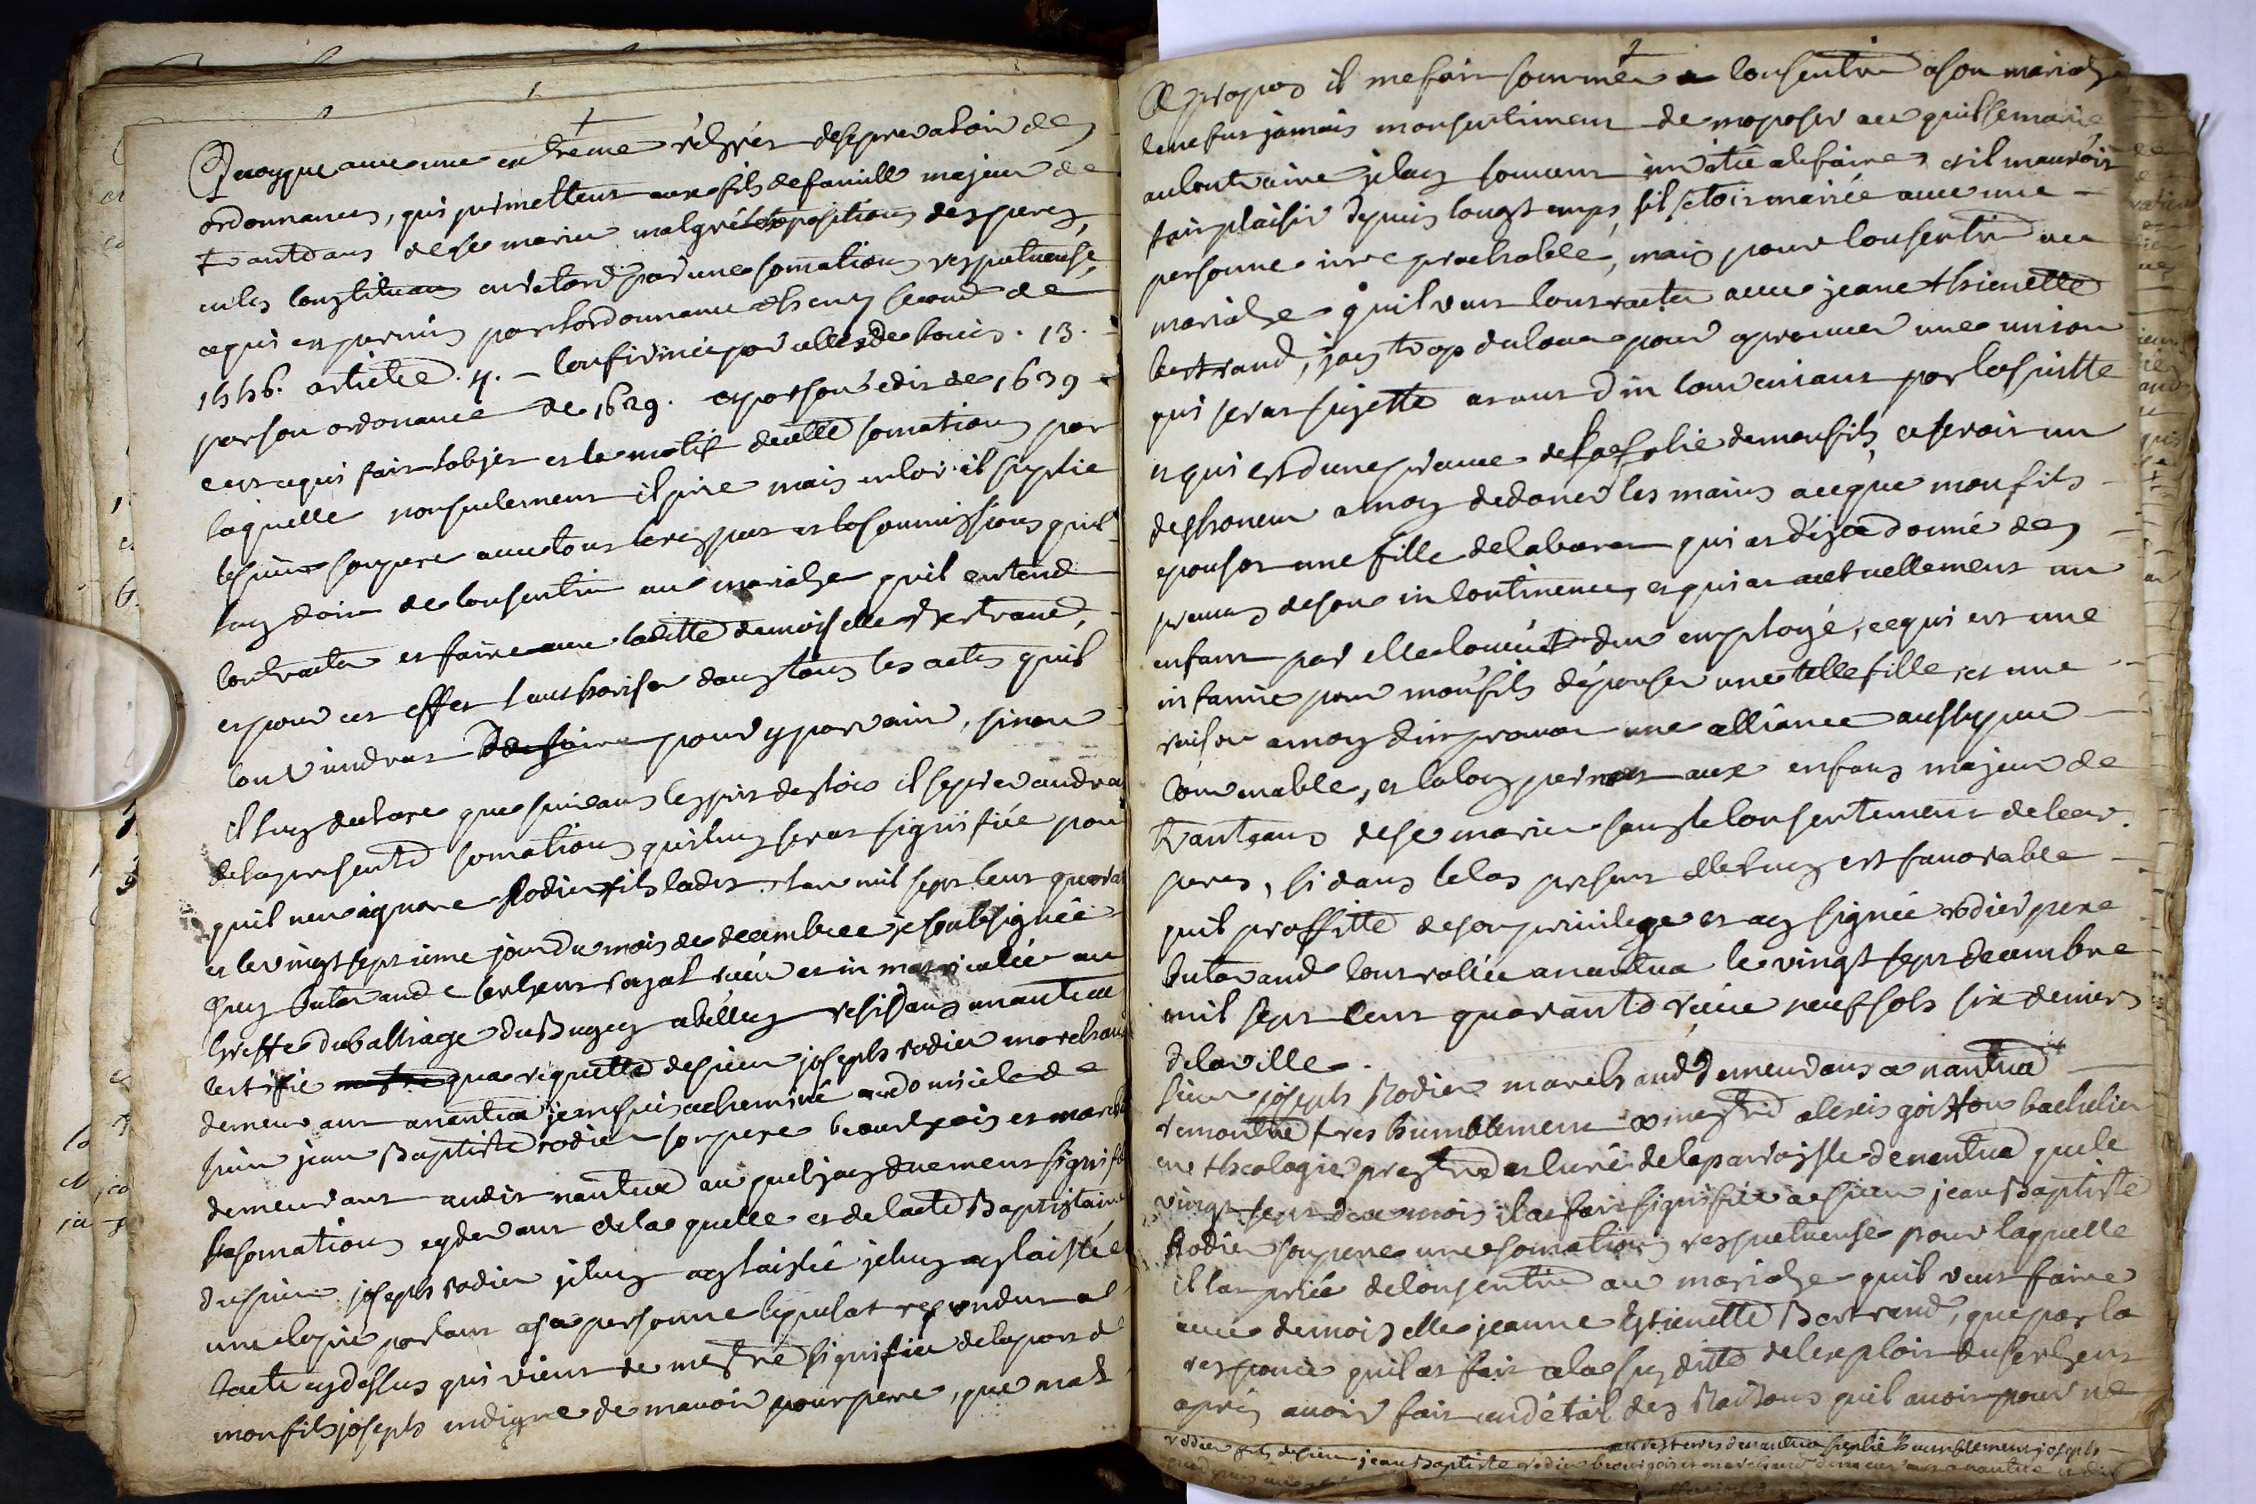 Quoyque avec une extreme regret de se prevaloir des
ordonnances, qui permettent aux fils de famille majeur de
trante ans de se marier malgré les opositions des peres,
en les constituans en retard par une somation respectueuse,
ce qui est permis par l'ordonnance d'henry second de
1556. article. 4. confirmée par celles de Louis. 13.
par son ordonance de 1629. et par son édit de 1639
c'est ce qui fait l'objet et le motif de cette somation par
laquelle non seulement il prie mais encor il suplie
le sieur son pere avec tout le respect et la soumission qu'il
luy doit de consentir au mariage qu'il entend
contracter et faire avec laditte demoiselle Bertrand,
et pour cet effet l'authoriser dans tous les actes qu'il
conviendrat de faire pour y parvenir, sinon
il luy declare que suivant l'esprit des lois il se prevaudra
de la presente somation qui luy serat signifiée pour
qu'il n'en ignore Rodier fils ladit. L'an mil sept cent quarante
et le vingt septieme jour du mois de decembre je soubsigné
Guy Butavand sergent royal reçu et immatriculée au
greffe du balliage du Bugey a belley residant a nantua
certifie qu'a requette de sieur joseph rodier marchand
demeurant a nantua je me suis acheminé au domicile de
sieur jean Baptiste rodier son pere bourgeois et marchand
demeurant audit nantua au quel j'ay duement signifié
la somation cy devant de la quelle et de l'acte Baptistaire
du sieur joseph rodier je luy ay laissé je luy ay laissée
une copie parlant a sa personne lequel at repondu a
l'acte cy dessus qui vient de m'estre signifiée de la part de
mon fils joseph indigne de m'avoir pour pere, que mal
a propos il me fait sommer a consentir a son mariage
ce ne fut jamais mon sentiment de m'oposer a ce qu'il se marie
au contraire je l'ay souvent invitée a le faire, et il m'auroit
fait plaisir depuis longtemps, s'il s'etoit mariée avec une
personne irreprochable, mais pour consentir au
mariage qu'il veut contracter avec jeane thienette
bertrand, j'ay trop du coeur pour aprouver une union
qui serat sujette a tant d'inconvenians par la suitte
et qui est d'une preuve de la folie de mon fils, ce seroit un
deshoneur a moy de doner les mains a ce que mon fils
epousat une fille de labaren qui at déja donné des
preuves de son incontinence, et qui at actuellement un
enfant par elle d'un employé, ce qui est une
infamie pour mon fils d'epouser une telle fille, et une
raison a moy d'improuver une alliance aussy peu
convenable, et la loy permet aux enfans majeur de
trante ans de se marier sans le consentement de leur
peres, si dans le cas present elle luy est favorable
qu'il proffitte de son privilege et ay signée rodier pere
butavand controllée a nantua le vingt sept decembre
mil sept cent quarante reçeu neuf sols six deniers
delaville.
Sieur joseph Rodier marchand demeurant a nantua
remontre tres humblement a messire alexis goiffon bachelier
en theologie prestre et curé de la parroisse de nantua que le
vingt sept du mois il a fait signifier a sieur jean Baptiste
Rodier son pere une somation respectueuse pour laquelle
il l'at priée de consentir au mariage qu'il veut faire
avec demoiselle jeanne Estienette Bertrand, que par la
responce qu'il at fait a la susditte de l'exploit du sergent
aprés avoir fait un détail des Raisons qu'il avoit pour ne
suplie humblement joseph
rodier fils de sieur jean Baptiste rodier bourgeois et marchand demeurant a nantua